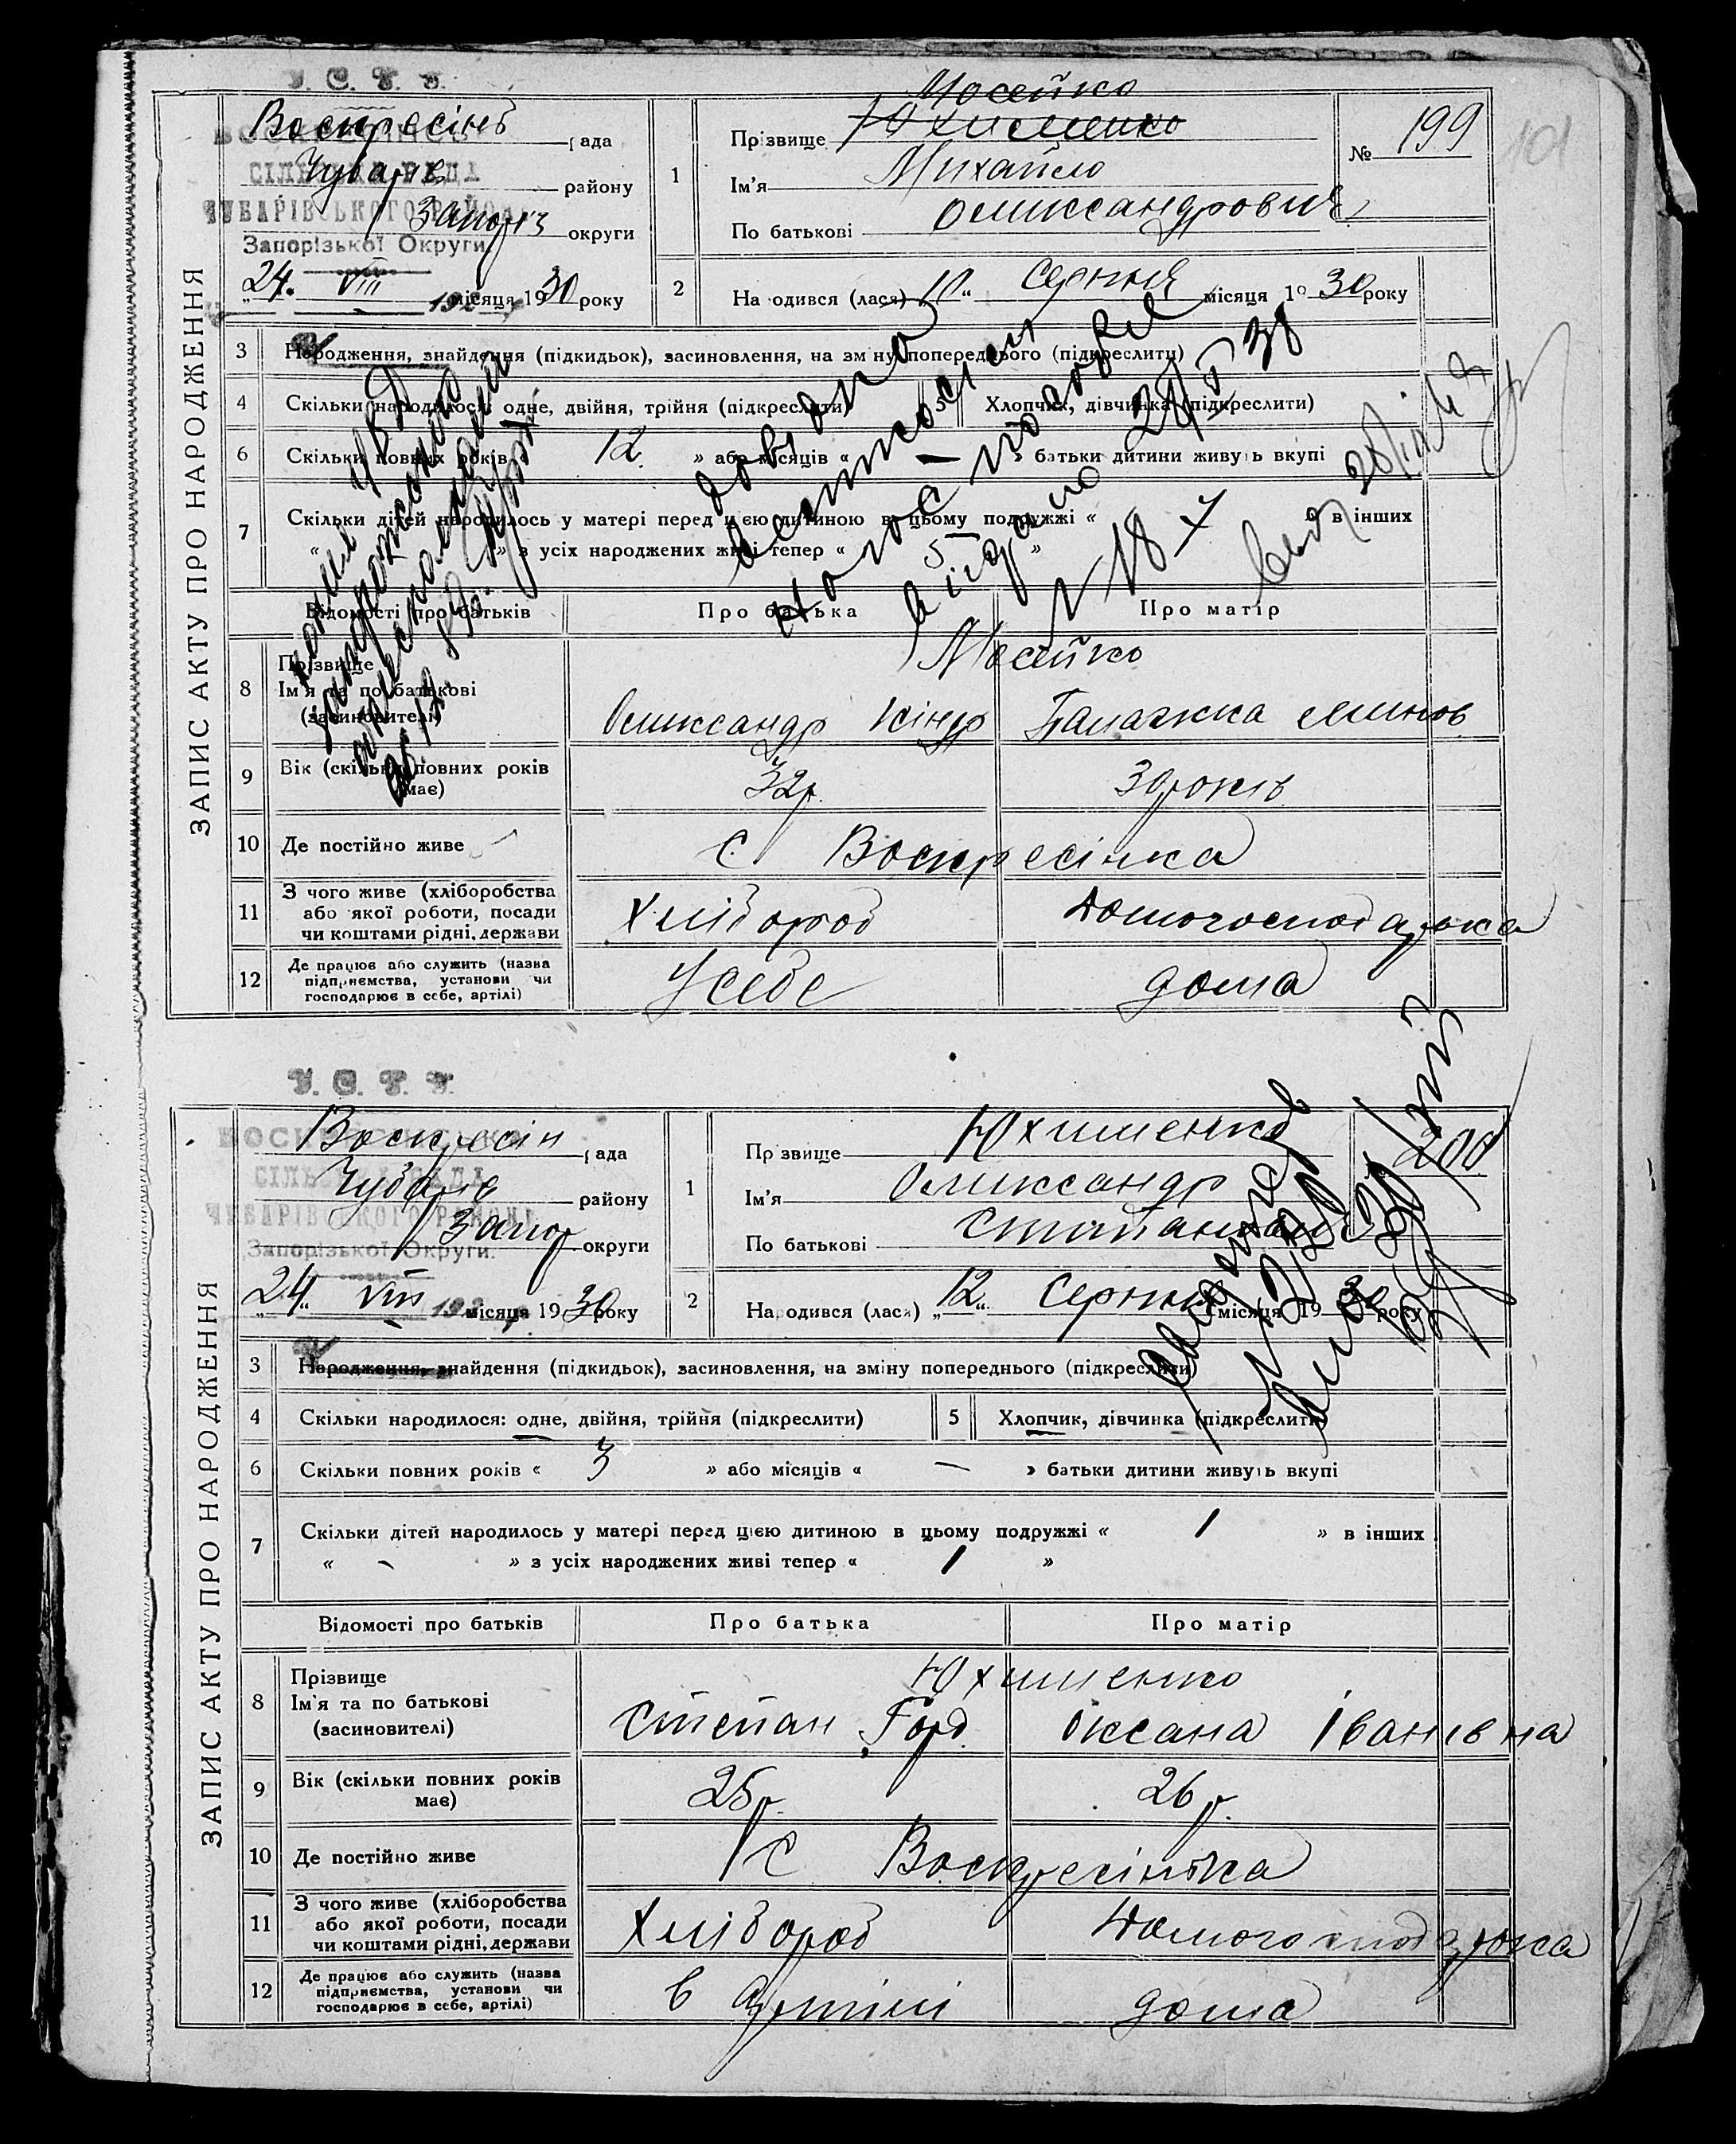 У.С.Р.Р.
Воскресінь рада
Чубарів району
Запоріз округи
ВОСКРЕСІНСЬКА
СІЛЬСЬКА РАДА
ЧУБАРІВСЬКОГО РАЙОНУ
Запорізької Округи
„24.“ VIII місяця 1930 року
Мосейко
1 Прізвище Юхименко
Ім'я Михайло
По батькові Оликсандрович
№ 199
101
2 Народився (лася) „10“ Серпня місяця 1930 року
ЗАПИС АКТУ ПРО НАРОДЖЕННЯ
3 Народження, знайдення (підкидьок), засиновлення, на зміну попереднього (підкреслити)
4 Скільки народилося: одне, двійня, трійня (підкреслити)
5 Хлопчик, дівчинка (підкреслити)
6 Скільки повних років « 12 » або місяців « — » батьки дитини живуть вкупі
7 Скільки дітей народилось у матері перед цією дитиною в цьому подружжі « » в інших
« » з усіх народжених живі тепер « 5 »
видано
Відомості про батьків Про батька Про матір
8 Прізвище Мосейко
Ім'я та по батькові Оликсандр Кіндр Палажка Минов
(засиновителі)
9 Вік (скільки повних років має) 32р. 30років
10 Де постійно живе с Воскресінка
11 З чого живе (хліборобства або якої роботи, посади чи коштами рідні, держави Хлібороб Домогосподарка
12 Де працює або служить (назва підприємства, установи чи господарює в себе, артілі) У себе дома
У.С.Р.Р.
Воскресін рада
Чубарів району
Запор округи
ВОСКРЕСІНСЬКА
СІЛЬСЬКА РАДА
ЧУБАРІВСЬКОГО РАЙОНУ
Запорізької Округи.
„24“ VIII місяця 1930 року
1 Прізвище Юхименко
Ім'я Оликсандр
По батькові Степанович
200
2 Народився (лася) „12“ Серпня місяця 1930 року
ЗАПИС АКТУ ПРО НАРОДЖЕННЯ
3 Народження, знайдення (підкидьок), засиновлення, на зміну попереднього (підкреслити)
4 Скільки народилося: одне, двійня, трійня (підкреслити)
5 Хлопчик, дівчинка (підкреслити)
6 Скільки повних років « 3 » або місяців « — » батьки дитини живуть вкупі
7 Скільки дітей народилось у матері перед цією дитиною в цьому подружжі « 1 » в інших
« - » з усіх народжених живі тепер « 1 »
Відомості про батьків Про батька Про матір
8 Прізвище Юхименко
Ім'я та по батькові Степан Горд. Оксана Іванівна
(засиновителі)
9 Вік (скільки повних років має) 25р. 26р.
10 Де постійно живе с Воскресінка
11 З чого живе (хліборобства або якої роботи, посади чи коштами рідні, держави Хлібороб Домогосподарка
12 Де працює або служить (назва підприємства, установи чи господарює в себе, артілі) в артілі дома